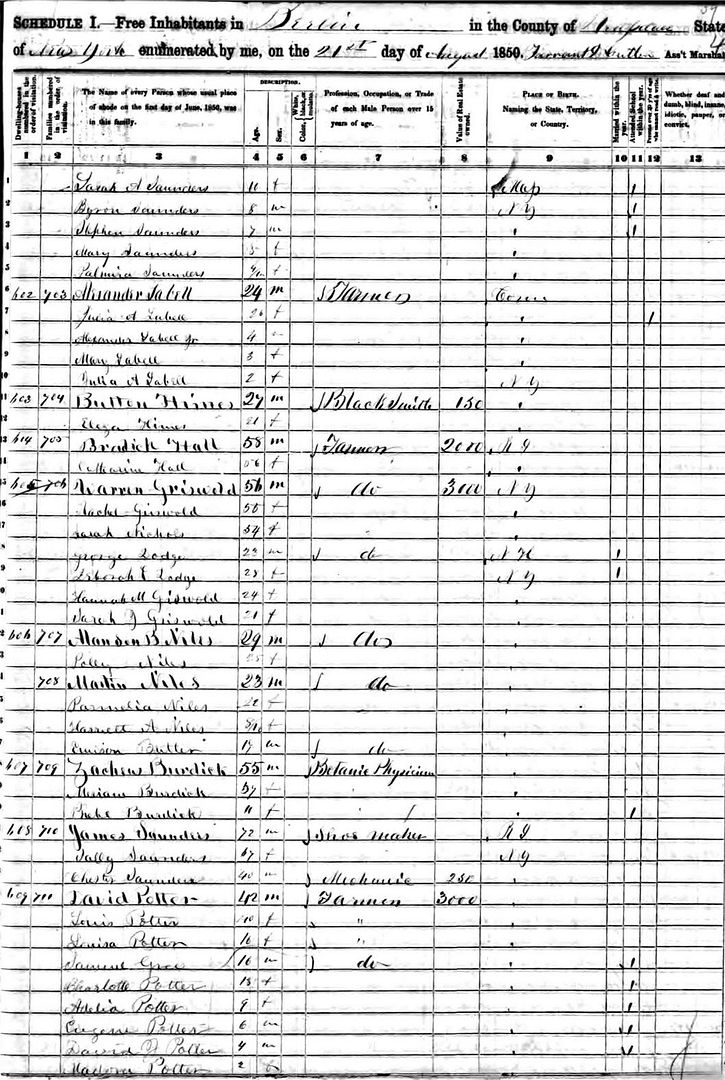 SCHEDULE I.—Free Inhabitants in Berlin in the County of Rensselaer State
of New York enumerated by me, on the 21st day of August 1850. Ass't Marshal
Dwelling-houses numbered in the order of visitation.
Families numbered in the order of visitation.
The Name of every Person whose usual place of abode on the first day of June, 1850, was in this family.
DESCRIPTION.
Age.
Sex.
Color, White, black, or mulatto.
Profession, Occupation, or Trade of each Male Person over 15 years of age.
Value of Real Estate owned.
PLACE OF BIRTH. Naming the State, Territory, or Country.
Married within the year.
Attended School within the year.
Persons over 20 y'rs of age who cannot read & write.
Whether deaf and dumb, blind, insane, idiotic, pauper, or convict.
1 2 3 4 5 6 7 8 9 10 11 12 13
Sarah A Saunders 10 f Mass 1
Byron Saunders 8 m N Y 1
Stephen Saunders 7 m " 1
Mary Saunders 5 f "
Palmira Saunders f "
602 703 Alexander Labell 24 m Farmer
Julia A Labell 26 f " 1
Alexander Labell Jr 4 m "
Mary Labell 3 f "
Julia A Labell 2 f N Y
603 704 Button Himes 27 m Black Smith 150 "
Eliza Himes 21 f "
604 705 Bradick Hall 58 m Farmer 2000 R I
Catharine Hall 56 f "
605 706 Warren Griswold 56 m do 3000 N Y
Rachel Griswold 55 f "
Sarah Nichols 54 f "
George Lodge 23 m do N H 1
Deborah E Lodge 28 f N Y 1
Hannah M Griswold 24 f "
Sarah J Griswold 21 f
606 707 Manson B. Niles 29 m do "
Polly Niles 25 f
708 Martin Niles 23 m do "
Parmelia Niles 22 f "
Harriett A Niles f "
Emison Butler 17 m do "
607 709 Zacheus Burdick 55 m Botanic Physician "
Miriam Burdick 57 f "
Phebe Burdick 11 f " 1
608 710 James Saunders 72 m Shoe maker R I
Sally Saunders 67 f N Y
Chester Saunders 40 m Mechanic 250 "
609 711 David Potter 42 m Farmer 3000 "
Lois Potter 40 f " "
Louisa Potter 16 f " "
Samuel 16 m do " 1
Charlotte Potter 13 f " 1
Adelia Potter 9 f " 1
Eugene Potter 6 m " 1
David Potter 4 m " 1
Madora Potter 2 f "